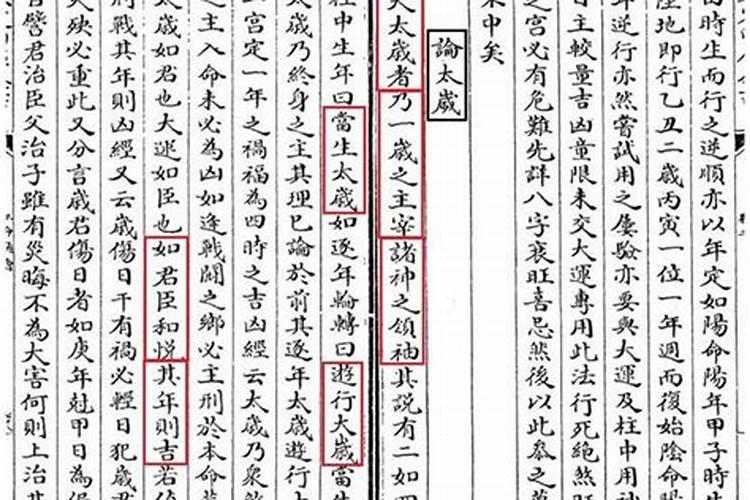 時生而行之逆順亦以年定如陽命陽年甲子時
陸地即行乙丑二歲丙寅一位一年週而復始陰命
年逆行亦然嘗試用之屢驗亦要與大運及柱中用
日主較量吉凶童限未交大運專用此法行死絕煞
之宮必有危難先詳八字衰旺喜忌然後以此叅之
中矣
論太歲
太歲者乃一歲之主宰諸神之領袖其説有二如四
柱中生年曰當生太歲如逐年輪轉曰遊行太歲當生
太歲乃終身之主其理已論於前其逐年太歲遊行
宮定一年之禍福為四時之吉凶經云太歲乃衆
之主入命未必為凶如逢戰鬭之鄉必主刑於本命
太歲如君也大運如臣也如君臣和悦其年則吉若
刑戰其年則凶經又云歲傷日干有禍必輕日犯歲君
殃必重此又分言歲君傷日者如庚年尅甲日為
譬君治臣父治子雖有災晦不為大害何則上治其